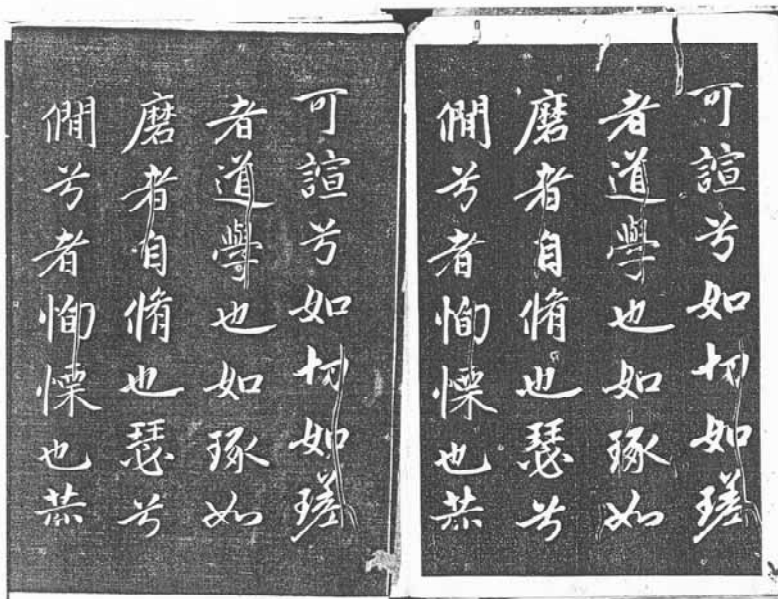 可諠兮如切如瑳
者道學也如琢如
磨者自脩也瑟兮
僩兮者恂慄也赫
可諠兮如切如瑳
者道學也如琢如
磨者自脩也瑟兮
僩兮者恂慄也赫